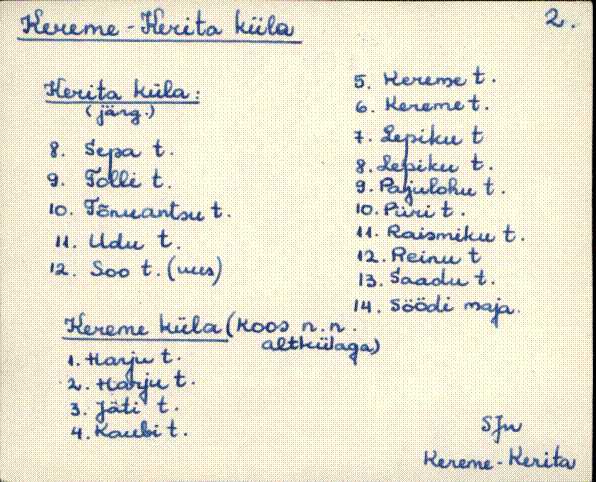 Kereme - Kerita küla
2.
Kerita küla:
(järg.)
8. Sepa t.
9. Tolli t.
10. Tõnuantsu t.
11. Udu t.
12. Soo t. (uus)
Kereme küla (koos n.n.
altkülaga)
1. Harju t.
2. Harju t.
3. Jäti t.
4. Kaubi t.
5. Kereme t.
6. Kereme t.
7. Lepiku t
8. Lepiku t.
9. Pajulohu t.
10. Piiri t.
11. Raismiku t.
12. Reinu t
13. Saadu t.
14. Söödi maja.
SJn
Kereme - Kerita